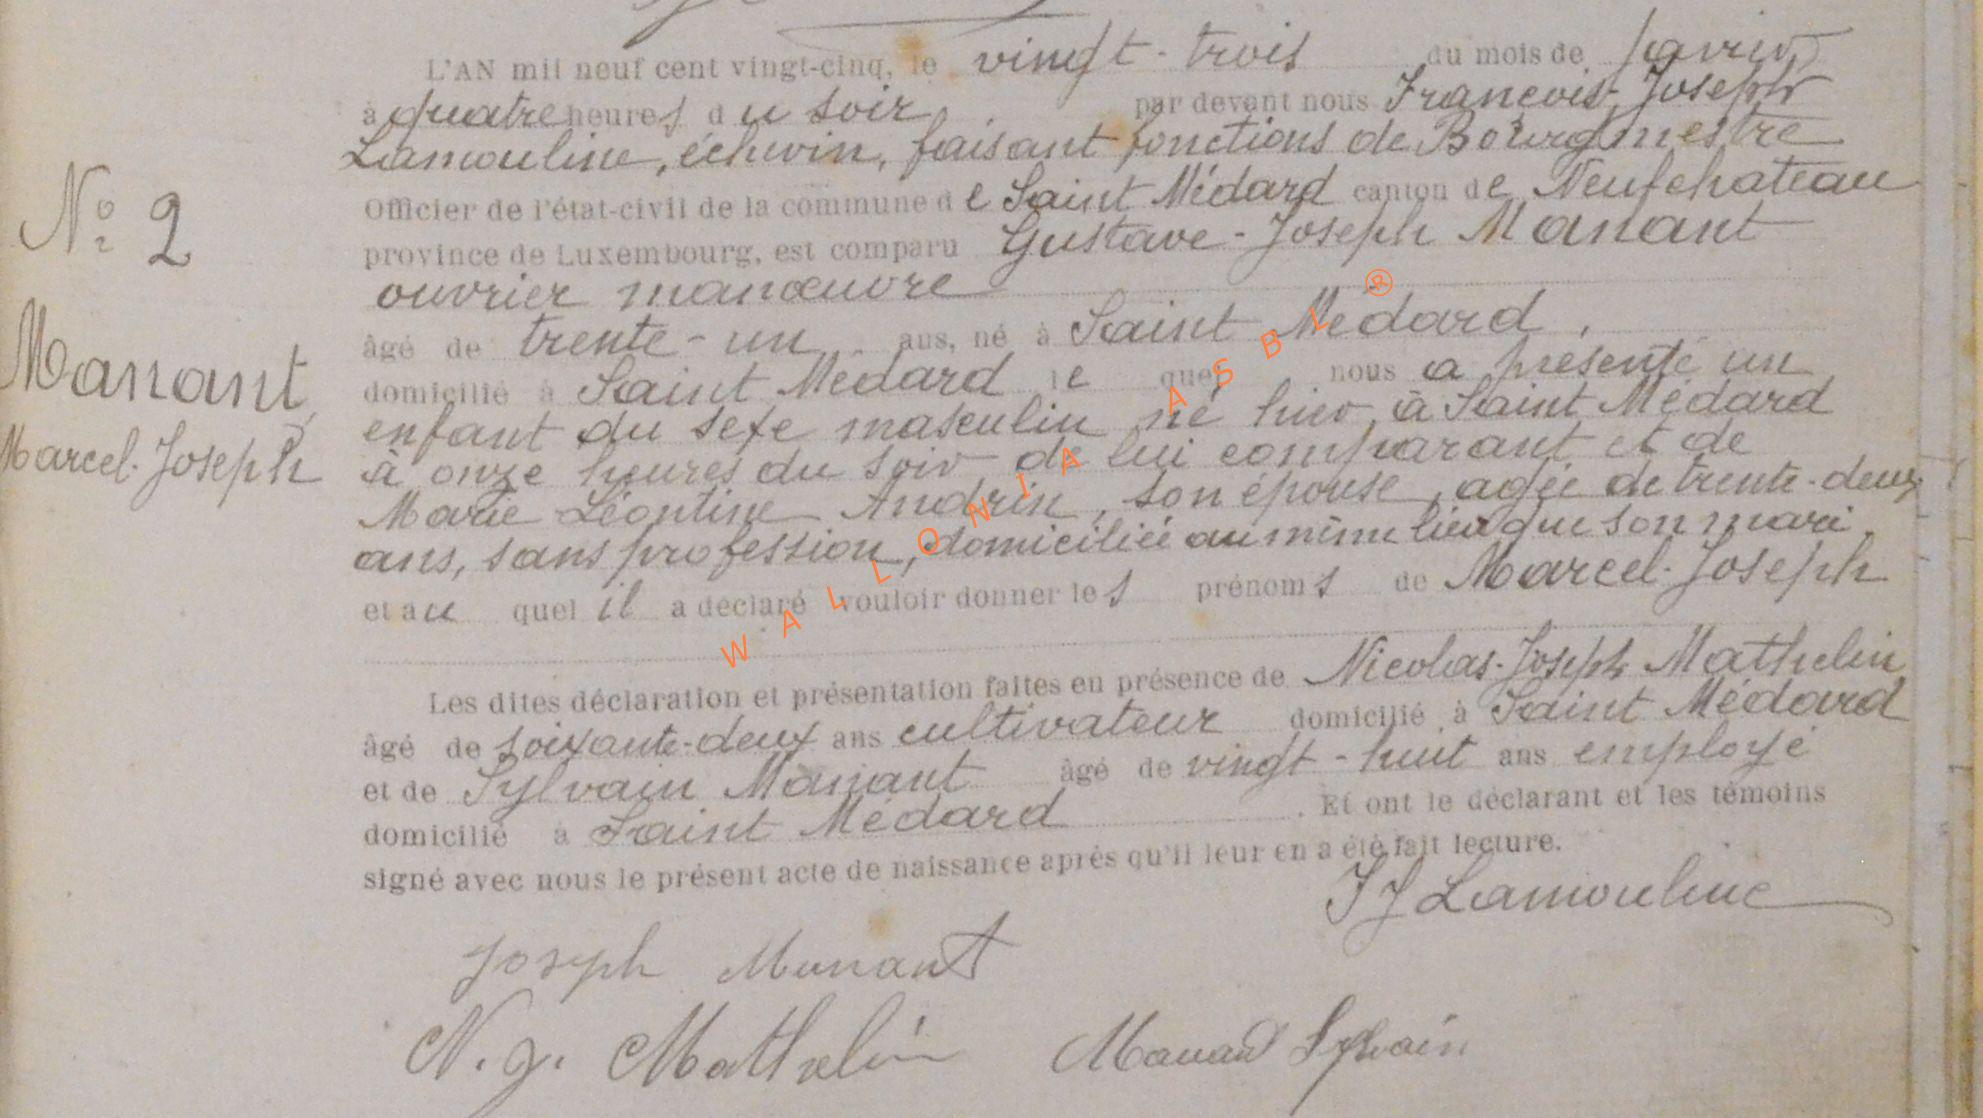 L'AN mil neuf cent vingt-cinq, le vingt-trois du mois de janvier
à quatre heures du soir par devant nous François-Joseph
Lamouline, échevin, faisant fonctions de Bourgmestre
Officier de l'état-civil de la commune de Saint Médard canton de Neufchateau
province de Luxembourg, est comparu Gustave-Joseph Manant
ouvrier manœuvre
âgé de trente-un ans, né à Saint Médard,
domicilié à Saint Médard lequel nous a présenté un
enfant du sexe masculin né hier, à Saint Médard
à onze heures du soir de lui comparant et de
Marie Léontine Andrin, son épouse, agée de trente-deux
ans, sans profession, domiciliée au même lieu que son mari
et auquel il a déclaré vouloir donner les prénoms de Marcel-Joseph
Les dites déclaration et présentation faites en présence de Nicolas-Joseph Mathelin
âgé de soixante-deux ans cultivateur domicilié à Saint Médard
et de Sylvain Manant âgé de vingt-huit ans employé
domicilié à Saint Médard. Et ont le déclarant et les témoins
signé avec nous le présent acte de naissance après qu'il leur en a été fait lecture.
FJ Lamouline
Joseph Manant
N. J. Mathelin Manand Sylvain
No 2
Manant,
Marcel-Joseph
WALLONIA ASBL ®